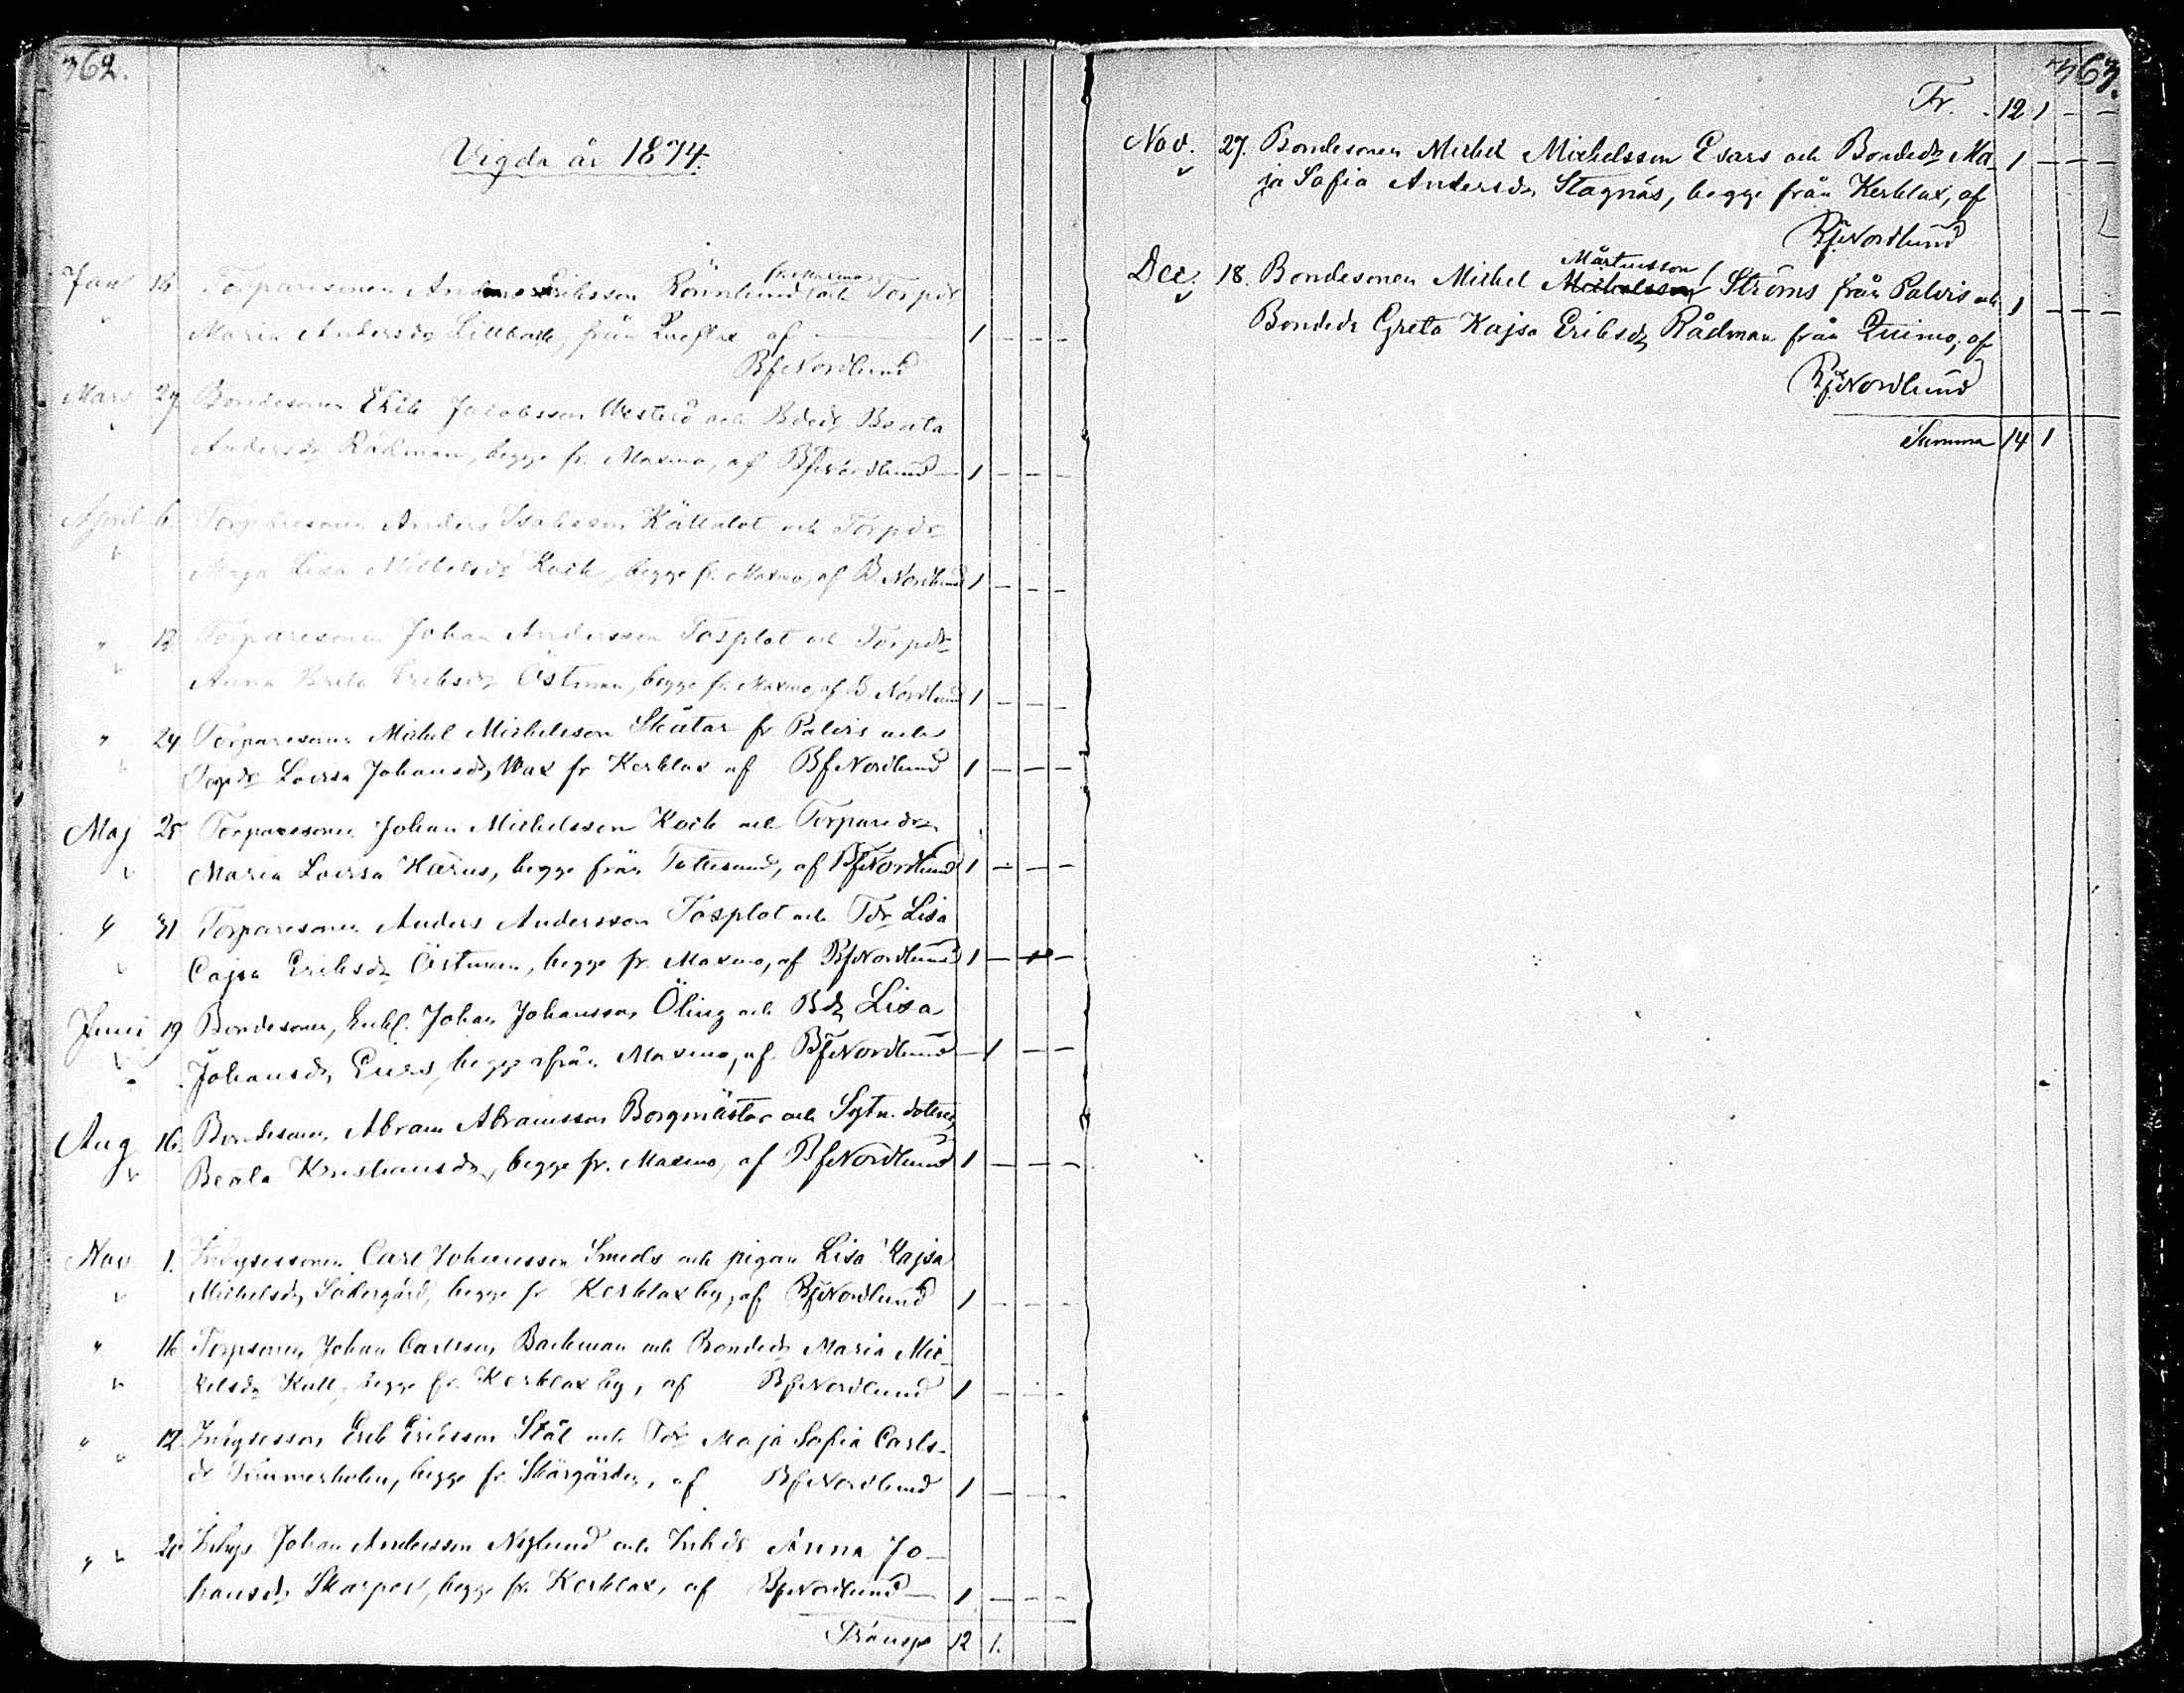 362.
Vigda år 1874.
Jan 18 Torparesonen Anders Eriksson Rönnlund fr. Maxmo och Torpdr
Maria Andersdr Lillback, från af 1
Bf Nordlund
Mars 29 Bondesonen Erik Jacobsson Westerö och Bdedr Beata
Andersdr Rådman, begge fr. Maxmo, af Bf Nordlund 1 - - -
April 6. Torparesonen Anders Isaksson Kättalot och Torpdr
Maja Lisa Mickelsdr Kock, begge fr. Maxmo, af B. Nordlund 1 - - -
" 12 Torparesonen Johan Andersson Tosplot och Torpdr
Anna Greta Eriksdr Östman, begge fr. Maxmo, af B. Nordlund 1 - - -
" 24 Torparesonen Michel Michelsson Skåtar fr Palvis och
Torpdr Lovisa Johansdr Wax fr Kerklax af Bf Nordlund 1 - - -
Maj 25 Torparesonen Johan Michelsson Kock och Torparedr
Maria Lovisa Harius, begge från Tottesund, af Bf Nordlund 1 - - -
" 31 Torparesonen Anders Andersson Tosplot och Tdr Lisa
Cajsa Eriksdr Östman, begge fr. Maxmo, af Bf Nordlund 1 - - -
Juni 19 Bondesonen, Enkl. Johan Johansson Öling och Bdr Lisa
Johansdr Eurs, begge ifrån Maxmo, af Bf Nordlund - 1 - -
Aug 16. Bondesonen Abram Abramsson Borgmästar och Sytn. dottren
Beata Kristiansdr, begge fr. Maxmo, af Bf Nordlund 1 - - -
Nov 1. Inhysessonen Carl Johansson Smeds och pigan Lisa Kajsa
Michelsdr Södergård, begge fr Kerklax by, af Bf Nordlund 1 - - -
" 16 Torpsonen Johan Carlsson Backman och Bondedr Maria Mic-
kelsdr Kull, begge fr. Kerklax by, af Bf Nordlund 1 - - -
" 12 Inhysesson Erik Ericsson Stål och Tdr Maja Sofia Carls-
dr Timmerholm, begge fr. Skärgården, af Bf Nordlund 1 - - -
" 20 Inhys. Johan Andersson Nylund och Inhdr Anna Jo-
hansdr Skarpar, begge fr. Kerklax, af Bf Nordlund 1 - - -
Transp 12 1.
363.
Fr. . 12 1 - -
Nov. 27. Bondesonen Michel Michelsson Esars och Bondedr Ma- 1 - - -
ja Sofia Andersdr Stagnäs, begge från Kerklax, af
Bf Nordlund
Mårtensson
Dec. 18. Bondesonen Michel Michelsson Ströms från Palvis och 1 - - -
Bondedr Greta Kajsa Eriksdr Rådman från Quimo, af
Bf Nordlund
Summa 14 1